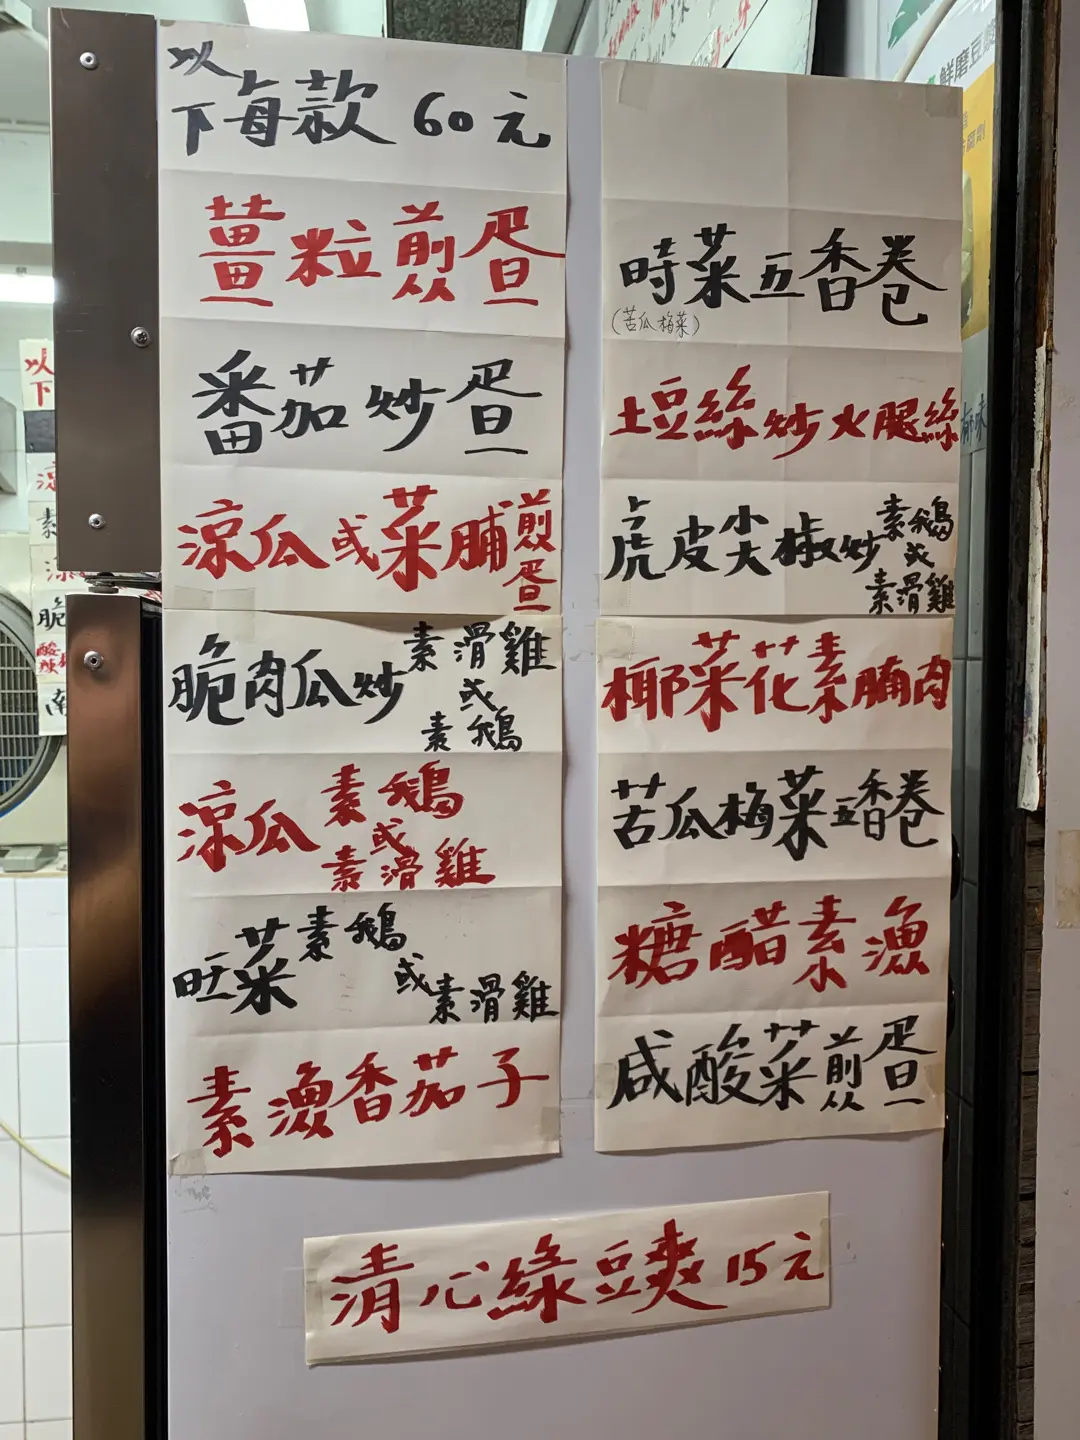 以
下每款 60元
薑粒煎蛋
番茄炒蛋
涼瓜或菜脯煎蛋
脆肉瓜炒素滑雞
或
素鵝
涼瓜素鵝
或
素滑雞
旺菜素鵝
或素滑雞
素漁香茄子
時菜五香卷
(苦瓜梅菜)
土豆絲炒火腿絲
虎皮尖椒炒素鵝
或
素滑雞
椰菜花素腩肉
苦瓜梅菜五香卷
糖醋素漁
咸酸菜煎蛋
清心綠豆爽 15元
鮮磨豆
以
下